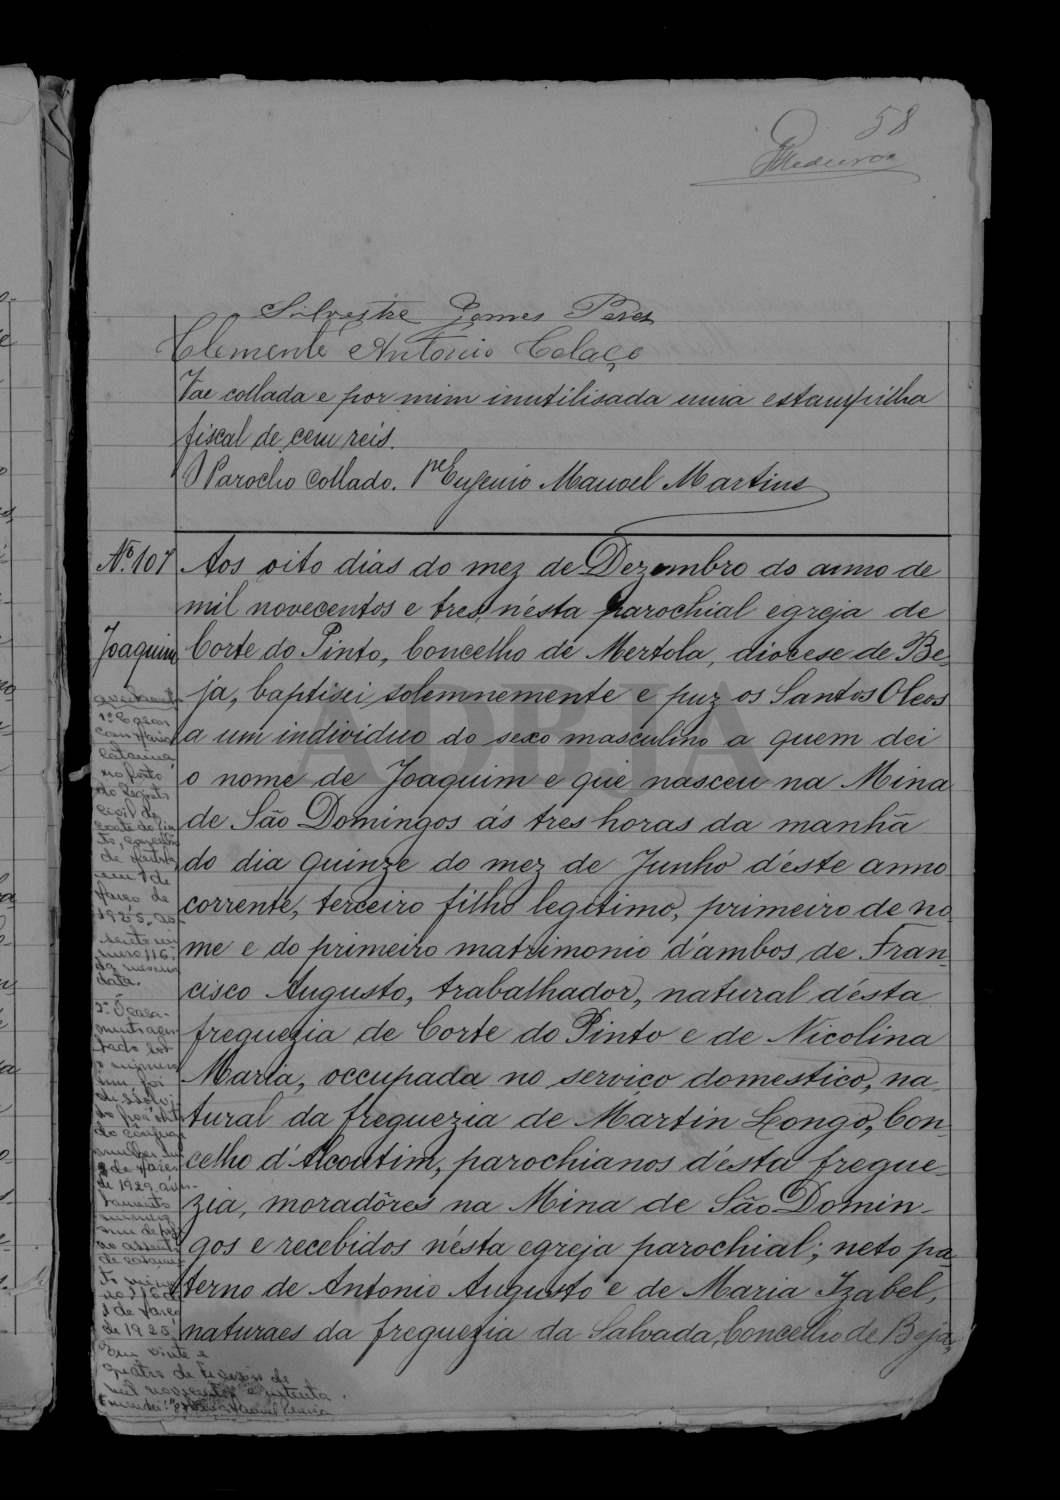 58
Silvestre Gomes Peres
Clemente Antonio Colaço
Vae collada e por mim inutilisada uma estampilha
fiscal de cem reis.
O Parocho Collado. Pe Eugenio Manoel Martins
Nº. 107
Joaquim
Aos oito dias do mez de Dezembro do anno de
mil novecentos e tres, n'ésta parochial egreja de
Corte do Pinto, Concelho de Mertola, diocese de Be-
ja, baptisei solemnemente e puz os Santos Oleos
a um individuo do sexo masculino a quem dei
o nome de Joaquim e que nasceu na Mina
de São Domingos ás tres horas da manhã
do dia quinze do mez de Junho d'éste anno
corrente, terceiro filho legitimo, primeiro de no-
me e do primeiro matrimonio d'ambos de Fran-
cisco Augusto, trabalhador, natural d'ésta
freguezia de Corte do Pinto e de Nicolina
Maria, occupada no serviço domestico, na-
tural da freguezia de Martin Longo, Con-
celho d'Alcoutim, parochianos d'ésta fregue-
zia, moradôres na Mina de São Domin-
gos e recebidos n'ésta egreja parochial; neto pa-
terno de Antonio Augusto e de Maria Izabel,
naturaes da freguezia da Salvada, Concelho de Beja,
1º Casou
com Maria
Catarina
no posto
do Registo
Civil de
Corte do Pin-
to, concelho
de Mertola
em 1 de
Março de
1925. As-
sento nu-
mero 116.
da mesma
data.
2º O casa-
mento
foi
dissolvi-
do
de 1929
1 de Março
de 1925.
Em vinte e
quatro de
mil novecentos e setenta.
ADBJA